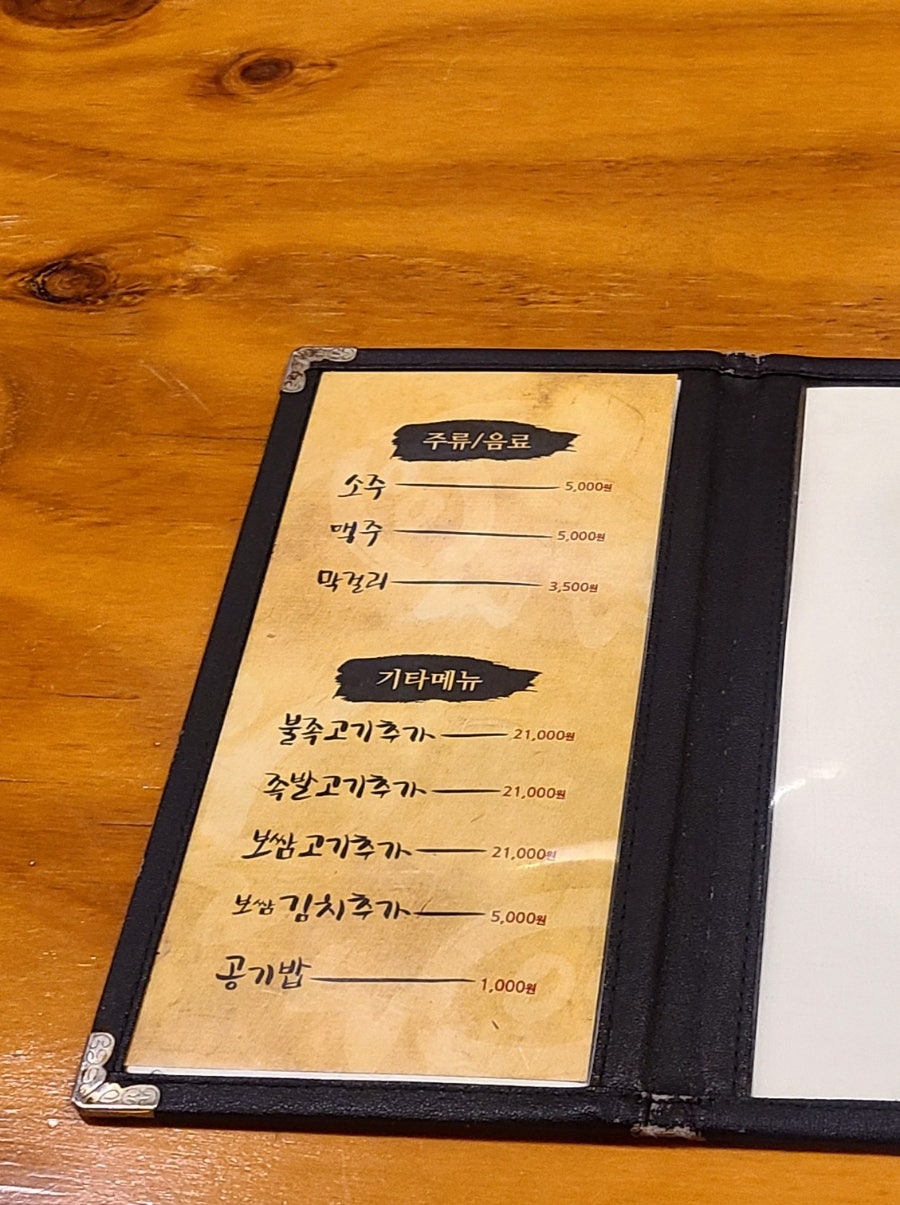 주류/음료
소주 5,000원
맥주 5,000원
막걸리 3,500원
기타메뉴
불족고기추가 21,000원
족발고기추가 21,000원
보쌈고기추가 21,000원
보쌈김치추가 5,000원
공기밥 1,000원